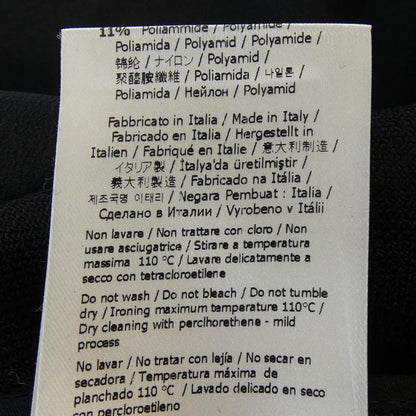 11% Poliammide / Polyamide /
Poliamida / Polyamid / Polyamide /
锦纶 / ナイロン / Polyamid /
聚醯胺纖維 / Poliamida / 나일론 /
Poliamida / Нейлон / Polyamid
Fabbricato in Italia / Made in Italy /
Fabricado en Italia / Hergestellt in
Italien / Fabriqué en Italie / 意大利制造 /
イタリア製 / İtalya'da üretilmiştir /
義大利製造 / Fabricado na Itália /
제조국명 이태리 / Negara Pembuat : Italia /
Сделано в Италии / Vyrobeno v Itálii
Non lavare / Non trattare con cloro / Non
usare asciugatrice / Stirare a temperatura
massima 110 °C / Lavare delicatamente a
secco con tetracloroetilene
Do not wash / Do not bleach / Do not tumble
dry / Ironing maximum temperature 110°C /
Dry cleaning with perclhorethene - mild
process
No lavar / No tratar con lejía / No secar en
secadora / Temperatura máxima de
planchado 110 °C / Lavado delicado en seco
con percloroetileno